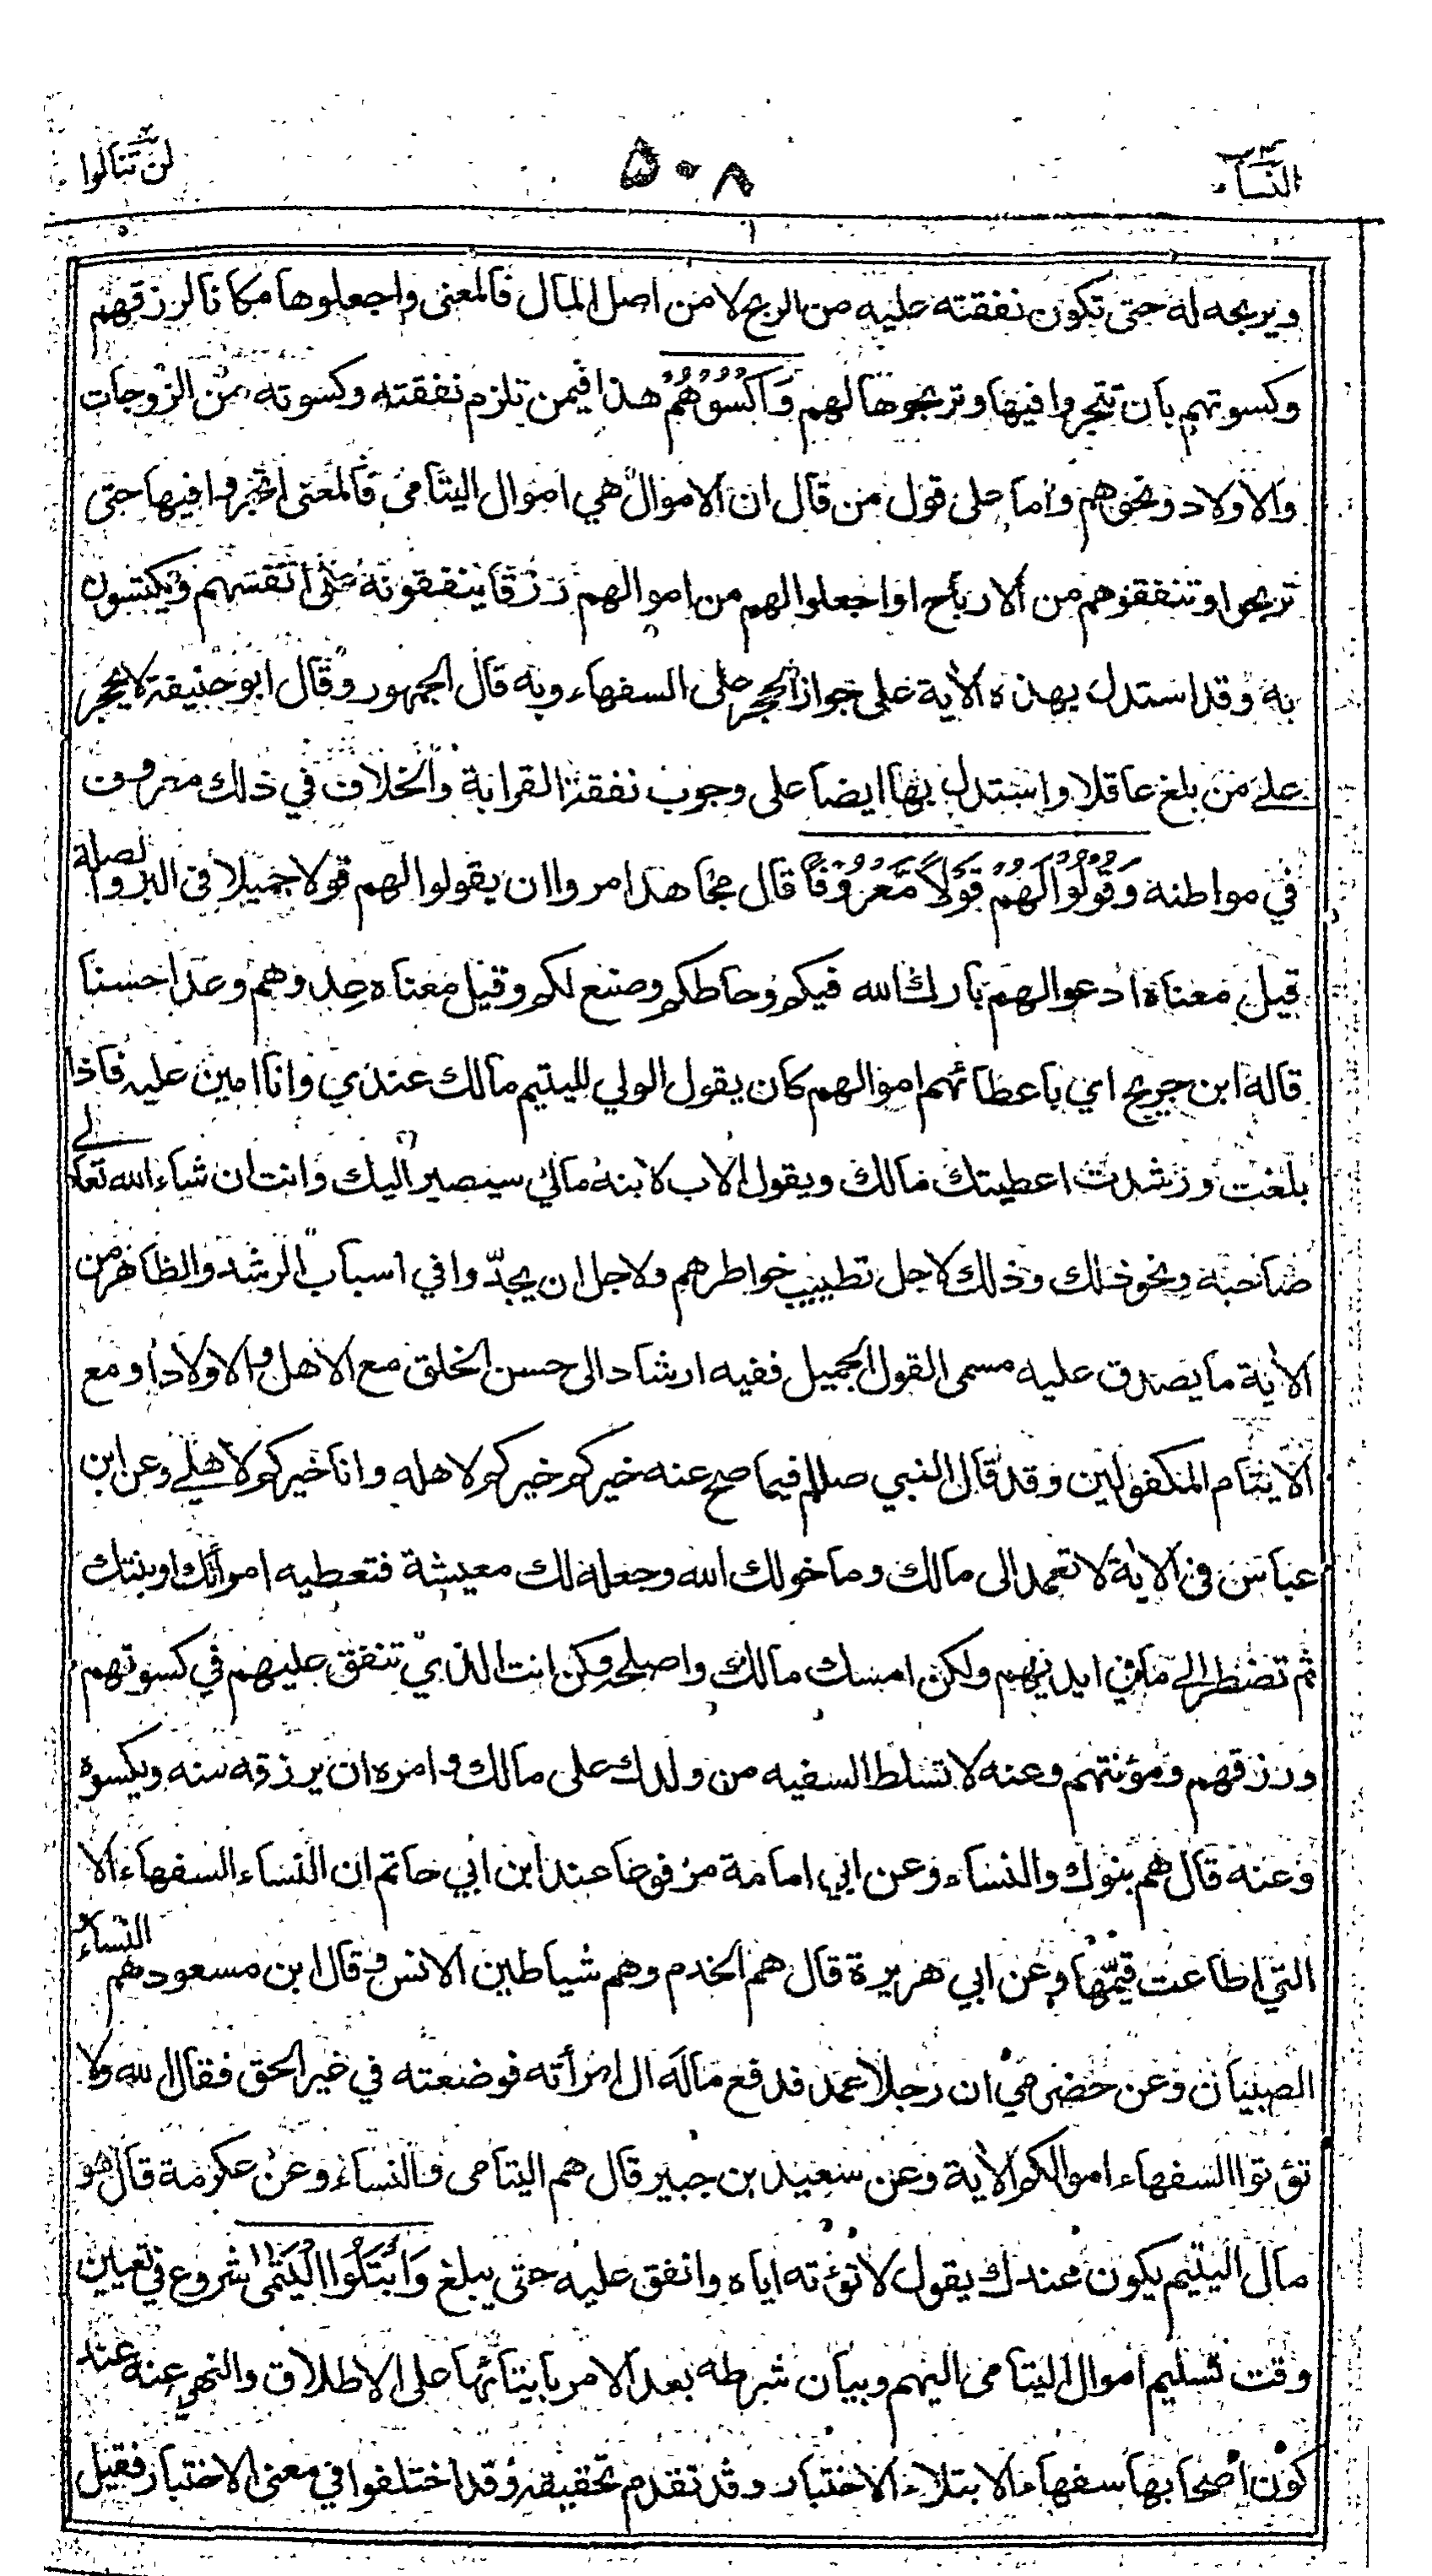 النساء ٥٠٨ لن تنالوا
ويربحه له حتى تكون نفقته عليه من الربح لا من اصل المال فالمعنى واجعلوها مكانا لرزقهم
وكسوتهم بان تتجروا فيها وتربحوها لهم وَاكْسُوْهُمْ هذا فيمن تلزم نفقته وكسوته من الزوجات
والاولاد ونحوهم واما على قول من قال ان الاموال هي اموال اليتامى فالمعنى اتجروا فيها حتى
تربحوا وتنفقوهم من الارباح او اجعلوا لهم من اموالهم رزقا ينفقونه على انفسهم ويكتسون
به وقد استدل بهذه الاية على جواز الحجر على السفهاء وبه قال الجمهور وقال ابو حنيفة لا يحجر
على من بلغ عاقلا واستدل بها ايضا على وجوب نفقة القرابة والخلاف في ذلك معروف
في مواطنه وَقُوْلُوْا لَهُمْ قَوْلًا مَّعْرُوْفًا قال مجاهد امروا ان يقولوا لهم قولا جميلا في البر والصلة
قيل معناه ادعوا لهم بارك الله فيكم وحاطكم وصنع لكم وقيل معناه عدوهم وعدا حسنا
قاله ابن جريج اي باعطائهم اموالهم كان يقول الولي لليتيم مالك عندي وانا امين عليه فاذا
بلغت ورشدت اعطيتك مالك ويقول الاب لابنه مالي سيصير اليك وانت ان شاء الله تعالى
صاحبه ونحو ذلك وذلك لاجل تطييب خواطرهم ولاجل ان يجدّوا في اسباب الرشد والظاهر من
الاية ما يصدق عليه مسمى القول الجميل ففيه ارشاد الى حسن الخلق مع الاهل والاولاد او مع
الايتام المكفولين وقد قال النبي صللم فيما صح عنه خيركم خيركم لاهله وانا خيركم لاهلي وعن ابن
عباس في الاية لا تعمد الى مالك وما خولك الله وجعله لك معيشة فتعطيه امرأتك او بنتك
ثم تضطر الى ما في ايديهم ولكن امسك مالك واصلحه وكن انت الذي تنفق عليهم في كسوتهم
ورزقهم ومؤنتهم وعنه لا تسلط السفيه من ولدك على مالك وامره ان يرزقه منه ويكسوه
وعنه قال هم بنوك والنساء وعن ابي امامة مرفوعا عند ابن ابي حاتم ان النساء السفهاء الا
التي اطاعت قيّمها وعن ابي هريرة قال هم الخدم وهم شياطين الانس وقال ابن مسعود هم النساء و
الصبيان وعن حضرمي ان رجلا عمد فدفع ماله الى امرأته فوضعته في غير الحق فقال الله ولا
تؤتوا السفهاء اموالكم الاية وعن سعيد بن جبير قال هم اليتامى والنساء وعن عكرمة قال هو
مال اليتيم يكون عندك يقول لا تؤته اياه وانفق عليه حتى يبلغ وَابْتَلُوا الْيَتٰمٰى شروع في تعيين
وقت تسليم اموال اليتامى اليهم وبيان شرطه بعد الامر بايتائها على الاطلاق والنهي عنه عند
كون اصحابها سفهاء الابتلاء الاختبار وقد تقدم تحقيقه وقد اختلفوا في معنى الاختبار فقيل